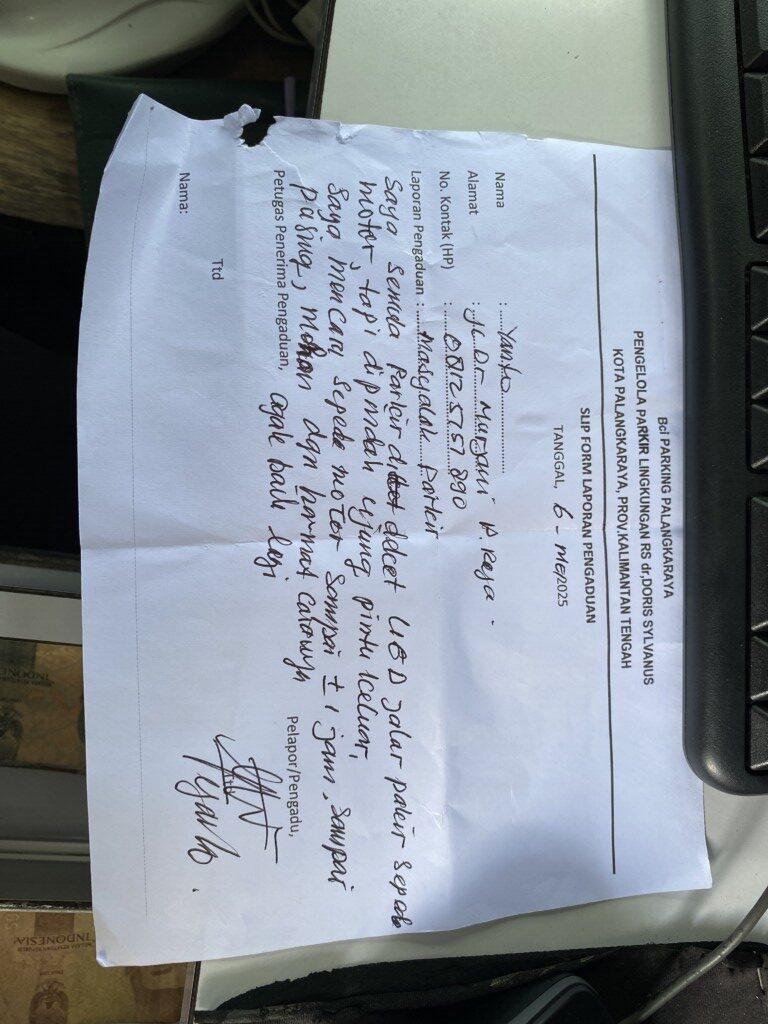 Bcl PARKING PALANGKARAYA
PENGELOLA PARKIR LINGKUNGAN RS dr,DORIS SYLVANUS
KOTA PALANGKARAYA, PROV.KALIMANTAN TENGAH
SLIP FORM LAPORAN PENGADUAN
TANGGAL, 6 - Mei2025
Nama : Yanto
Alamat : Jl. Dr Murjani P. Raya.
No. Kontak (HP) :
Laporan Pengaduan : Masyalah parkir
Saya semula parkir ddcet UGD jalur pakir sepeda
motor, tapi dipindah ujung pintu keluar,
Saya mencary sepeda motor sampai ± 1 jam, sampai
pusing, mohon dgn hormat caranya
agak baik lagi
Petugas Penerima Pengaduan,
Pelapor/Pengadu,
Ttd
Yanto.
Nama:
INDONESIA
INDONESIA